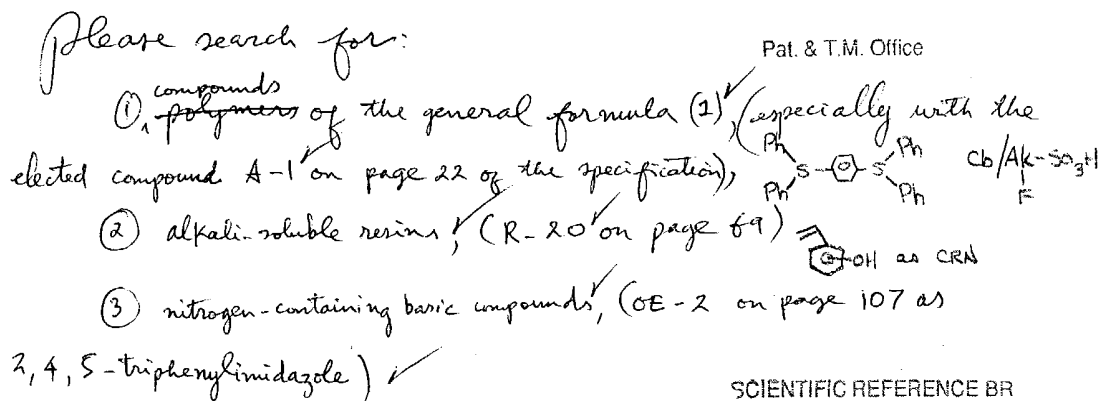 Please search for:
Pat. & T.M. Office
① compounds polymers of the general formula (1), (especially with the
elected compound A-1 on page 22 of the specification),
Ph S S Ph Cb/Ak-SO3H
Ph Ph F
② alkali-soluble resins, (R-20 on page 69)
OH as CRN
③ nitrogen-containing basic compounds, (OE-2 on page 107 as
2,4,5-triphenylimidazole)
SCIENTIFIC REFERENCE BR